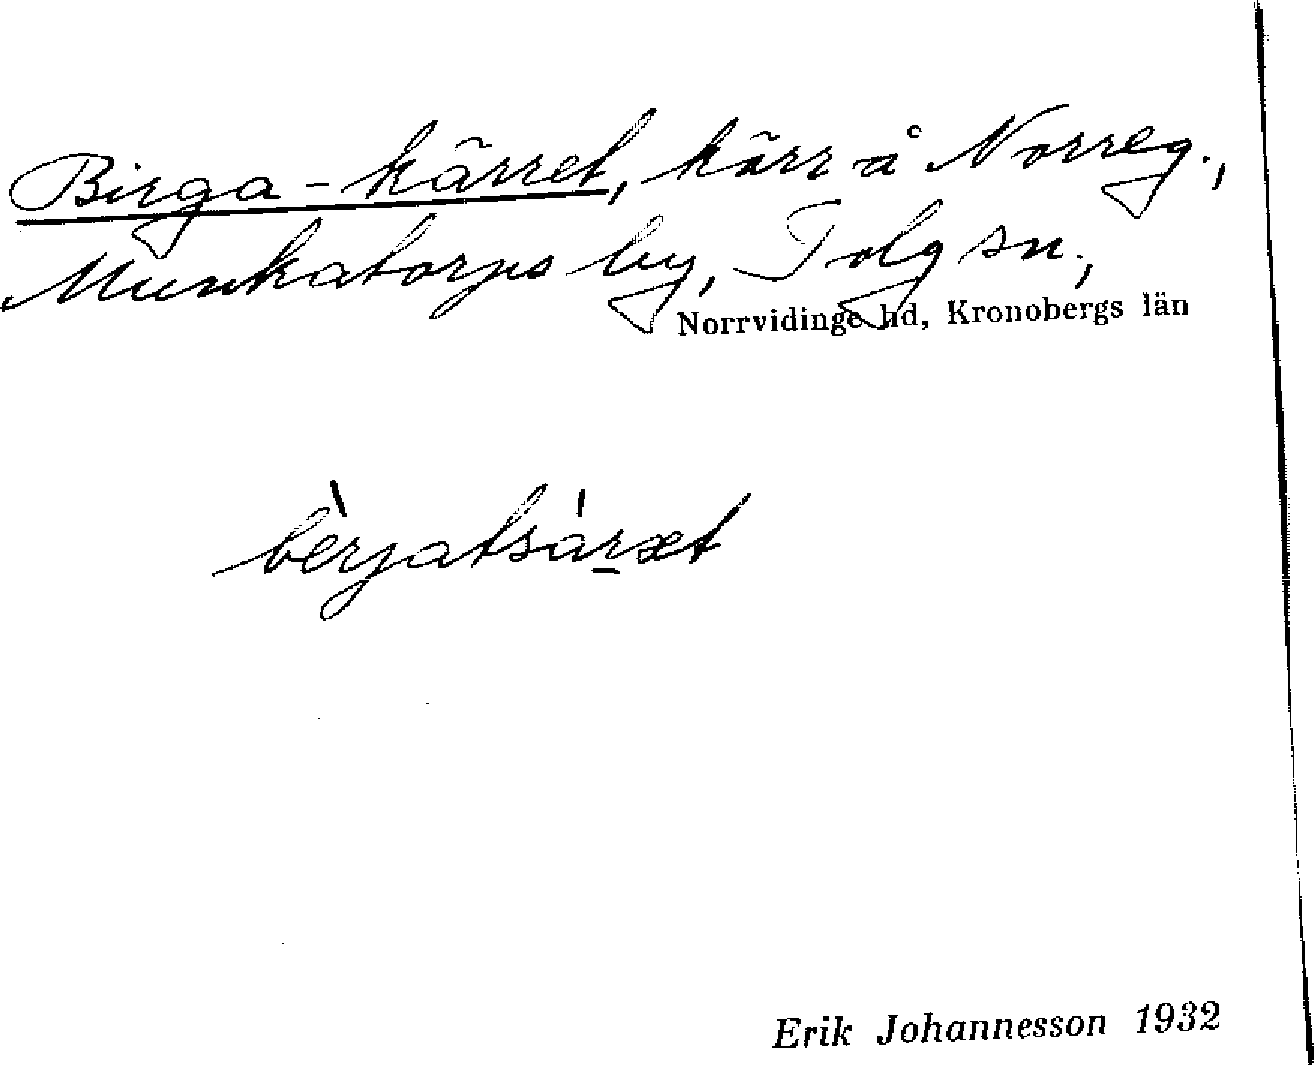 Birga-kärret, kärr å Norreg.,
Munkatorps by, Tolg sn.,
Norrvidinge hd, Kronobergs län
Erik Johannesson 1932